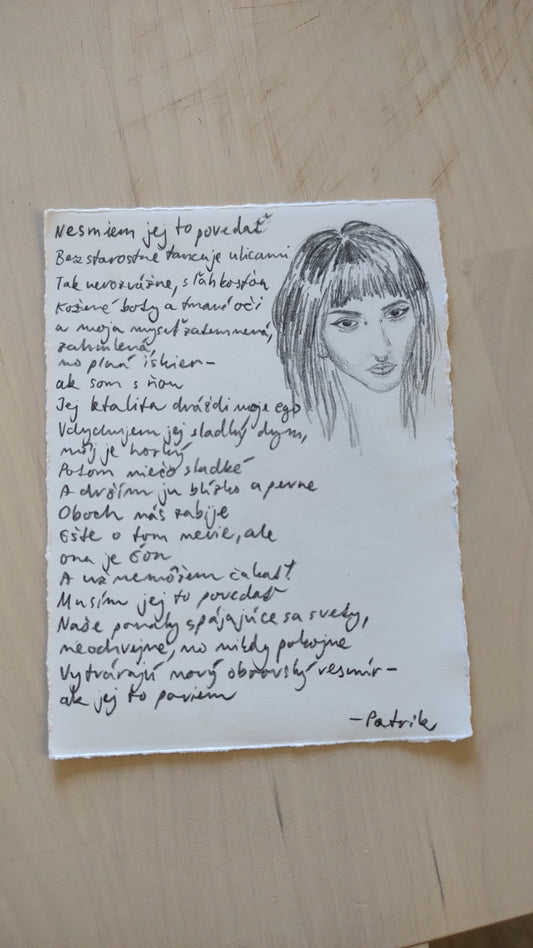 Nesmiem jej to povedať
Bezstarostne tancuje ulicami
Tak nerozvážne, s ľahkosťou
Kožené boty a tmavé oči
a moja myseľ zatemnená,
zahmlená,
no plná iskier—
ak som s ňou
Jej kvalita dráždi moje ego
Vdychujem jej sladký dym,
môj je horký
Potom niečo sladké
A držím ju blízko a pevne
Oboch nás zabije
Ešte o tom nevie, ale
ona je
A už nemôžem čakať!
Musím jej to povedať
Naše povahy spájajúce sa svety,
neochvejné, no nikdy pokojne
Vytvárajú nový obrovský vesmír—
ak jej to poviem
—Patrik